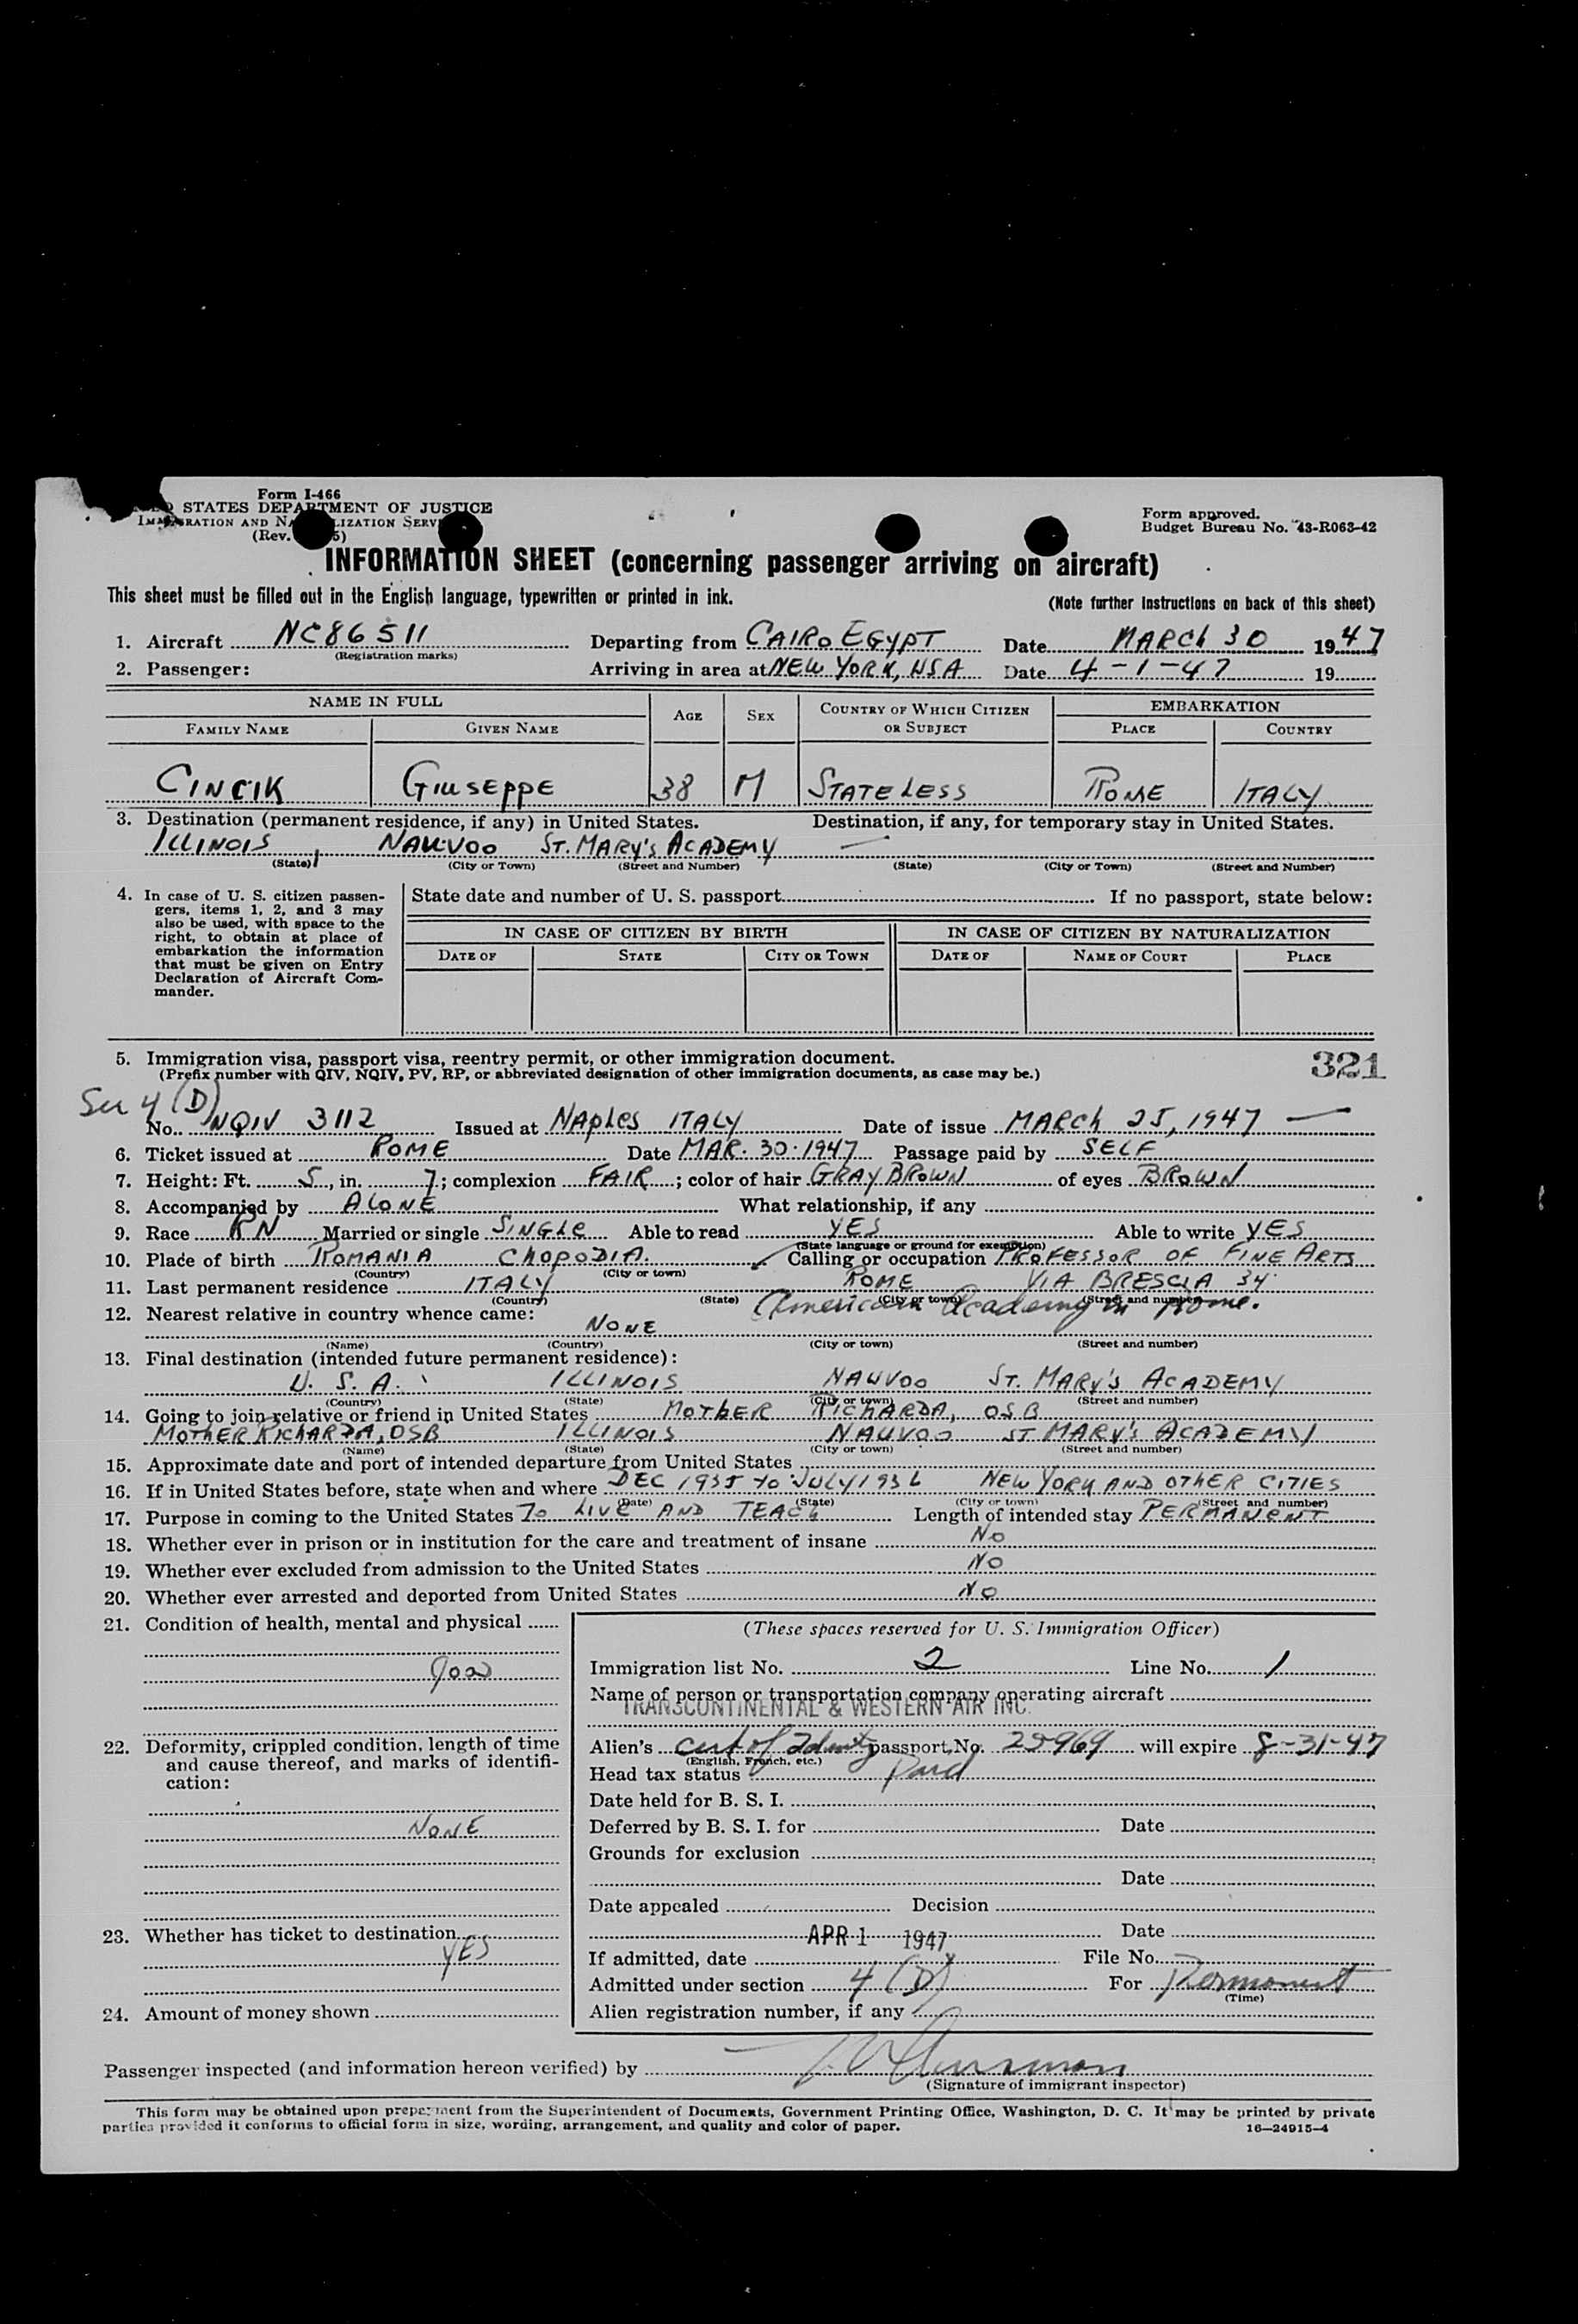 Form I-466
STATES DEPARTMENT OF JUSTICE
IMMIGRATION AND NATURALIZATION SERV
(Rev. 5)
Form approved.
Budget Bureau No. 43-R063-42
INFORMATION SHEET (concerning passenger arriving on aircraft)
This sheet must be filled out in the English language, typewritten or printed in ink.
(Note further instructions on back of this sheet)
1. Aircraft NC86511 Departing from CAIRO EGYPT Date MARCH 30 1947
(Registration marks)
2. Passenger: Arriving in area at NEW YORK, USA Date 4-1-47 19
NAME IN FULL AGE SEX COUNTRY OF WHICH CITIZEN OR SUBJECT EMBARKATION
FAMILY NAME GIVEN NAME PLACE COUNTRY
CINCIK GIUSEPPE 38 M STATELESS ROME ITALY
3. Destination (permanent residence, if any) in United States. Destination, if any, for temporary stay in United States.
ILLINOIS, NAUVOO ST. MARY'S ACADEMY —
(State) (City or Town) (Street and Number) (State) (City or Town) (Street and Number)
4. In case of U. S. citizen passen-
gers, items 1, 2, and 3 may
also be used, with space to the
right, to obtain at place of
embarkation the information
that must be given on Entry
Declaration of Aircraft Com-
mander.
State date and number of U. S. passport If no passport, state below:
IN CASE OF CITIZEN BY BIRTH IN CASE OF CITIZEN BY NATURALIZATION
DATE OF STATE CITY OR TOWN DATE OF NAME OF COURT PLACE
5. Immigration visa, passport visa, reentry permit, or other immigration document.
(Prefix number with QIV, NQIV, PV, RP, or abbreviated designation of other immigration documents, as case may be.)
321
Sec 4 (D)
No. NQIV 3112 Issued at NAPLES ITALY Date of issue MARCH 25, 1947 —
6. Ticket issued at ROME Date MAR. 30. 1947 Passage paid by SELF
7. Height: Ft. 5, in. 7; complexion FAIR; color of hair GRAY BROWN of eyes BROWN
8. Accompanied by ALONE What relationship, if any
9. Race RN Married or single SINGLE Able to read YES Able to write YES
(State language or ground for exemption)
10. Place of birth ROMANIA CHOPODIA. Calling or occupation PROFESSOR OF FINE ARTS
(Country) (City or town)
11. Last permanent residence ITALY ROME VIA BRESCIA 34
(Country) (State) (City or town) (Street and number)
American Academy in Rome.
12. Nearest relative in country whence came:
NONE
(Name) (Country) (City or town) (Street and number)
13. Final destination (intended future permanent residence):
U. S. A. ILLINOIS NAUVOO ST. MARY'S ACADEMY
(Country) (State) (City or town) (Street and number)
14. Going to join relative or friend in United States MOTHER RICHARDA, OSB
MOTHER RICHARDA, OSB ILLINOIS NAUVOO ST MARY'S ACADEMY
(Name) (State) (City or town) (Street and number)
15. Approximate date and port of intended departure from United States
16. If in United States before, state when and where DEC 1935 TO JULY 1936 NEW YORK AND OTHER CITIES
(Date) (State) (City or town) (Street and number)
17. Purpose in coming to the United States TO LIVE AND TEACH Length of intended stay PERMANENT
18. Whether ever in prison or in institution for the care and treatment of insane NO
19. Whether ever excluded from admission to the United States NO
20. Whether ever arrested and deported from United States NO
21. Condition of health, mental and physical
good
22. Deformity, crippled condition, length of time
and cause thereof, and marks of identifi-
cation:
NONE
23. Whether has ticket to destination
YES
24. Amount of money shown
(These spaces reserved for U. S. Immigration Officer)
Immigration list No. 2 Line No. 1
Name of person or transportation company operating aircraft
TRANSCONTINENTAL & WESTERN AIR INC.
Alien's cert of Identity passport No. 25969 will expire 8-31-47
(English, French, etc.)
Head tax status Paid
Date held for B. S. I.
Deferred by B. S. I. for Date
Grounds for exclusion
Date
Date appealed Decision
Date
APR 1 1947
If admitted, date File No.
Admitted under section 4 (D) For Permanent
(Time)
Alien registration number, if any
Passenger inspected (and information hereon verified) by
(Signature of immigrant inspector)
This form may be obtained upon prepayment from the Superintendent of Documents, Government Printing Office, Washington, D. C. It may be printed by private
parties provided it conforms to official form in size, wording, arrangement, and quality and color of paper.
16—24915-4